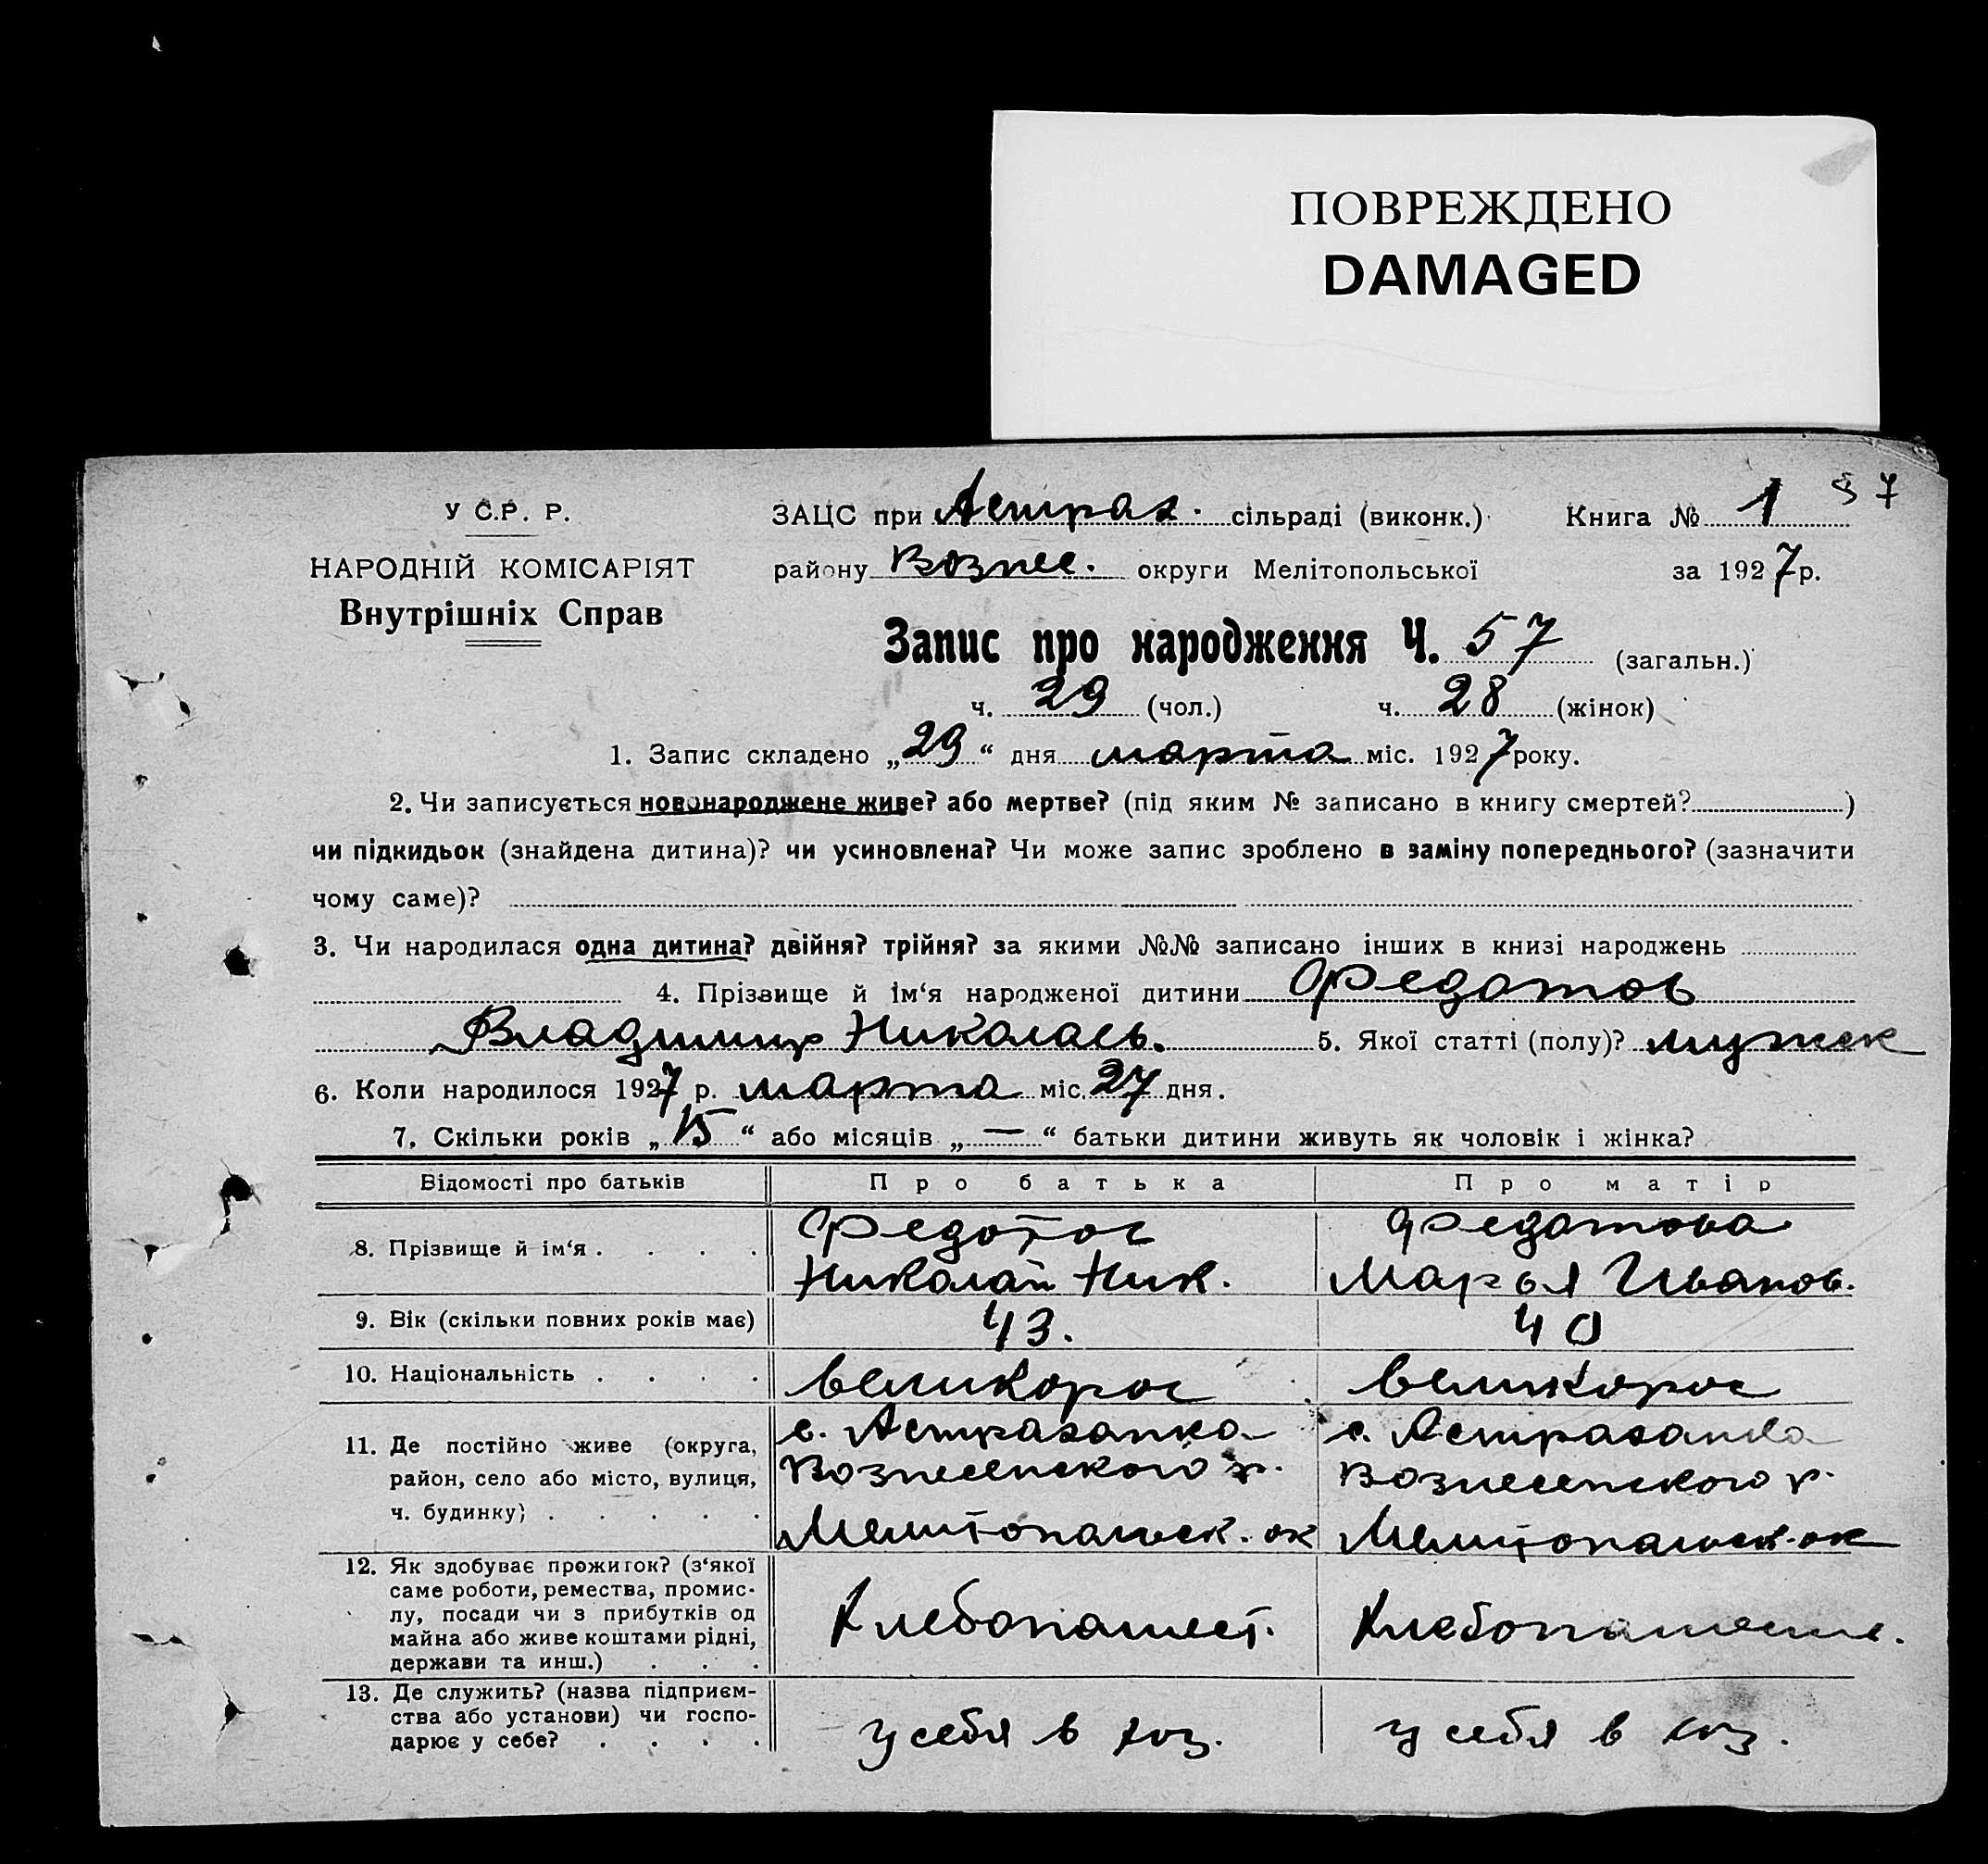 ПОВРЕЖДЕНО
DAMAGED
У С.Р. Р.
НАРОДНІЙ КОМІСАРІЯТ
Внутрішніх Справ
ЗАЦС при Астрах. сільраді (виконк.) Книга № 1 57
району Вознес. округи Мелітопольської за 1927 р.
Запис про народження Ч. 57 (загальн.)
ч. 29 (чол.) ч. 28 (жінок)
1. Запис складено „29“ дня марта міс. 1927 року.
2. Чи записується новонароджене живе? або мертве? (під яким № записано в книгу смертей? )
чи підкидьок (знайдена дитина)? чи усиновлена? Чи може запис зроблено в заміну попереднього? (зазначити
чому саме)?
3. Чи народилася одна дитина? двійня? трійня? за якими №№ записано інших в книзі народжень
4. Прізвище й ім‘я народженої дитини Федотов
Владимир Николаев. 5. Якої статті (полу)? мужск
6. Коли народилося 1927 р. марта міс. 27 дня.
7. Скільки років „15“ або місяців „—“ батьки дитини живуть як чоловік і жінка?
Відомості про батьків Про батька Про матір
8. Прізвище й ім‘я . . . . Федотов Федотова
Николай Ник. Марья Иванов.
9. Вік (скільки повних років має) 43. 40
10. Національність . . . . великорос великорос
11. Де постійно живе (округа, с. Астраханка с. Астраханка
район, село або місто, вулиця, Вознесенского р. Вознесенского р.
ч. будинку) . . . . . Мелитопольск. ок Мелитопольск. ок
12. Як здобуває прожиток? (з‘якої
саме роботи, ремества, промис-
лу, посади чи з прибутків од Хлебопашест. Хлебопашеств.
майна або живе коштами рідні,
держави та инш.) . . .
13. Де служить? (назва підприєм-
ства або установи) чи госпо- у себя в хоз. у себя в хоз.
дарює у себе? . . . .